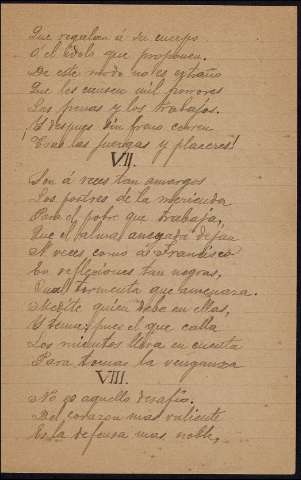 Que regulan á su cuerpo
O el ídolo que proponen.
De este modo no es extraño
Que les causen mil
Las penas y los trabajos.
¡Y despues sin freno corren
Tras las juergas y placeres!
VII.
Son á veces tan amargos
Los postres de la merienda
Para el pobre que trabaja,
Que el alma anegada dejan
A veces como á Francisco
En reflexiones tan negras,
Cual tormenta que amenaza.
Medite quien debe en ellas,
Y tema; pues el que calla
Los minutos lleva en cuenta
Para tomar la venganza
VIII.
No es aquello desafío.
Del corazon mas valiente
Es la defensa mas noble,